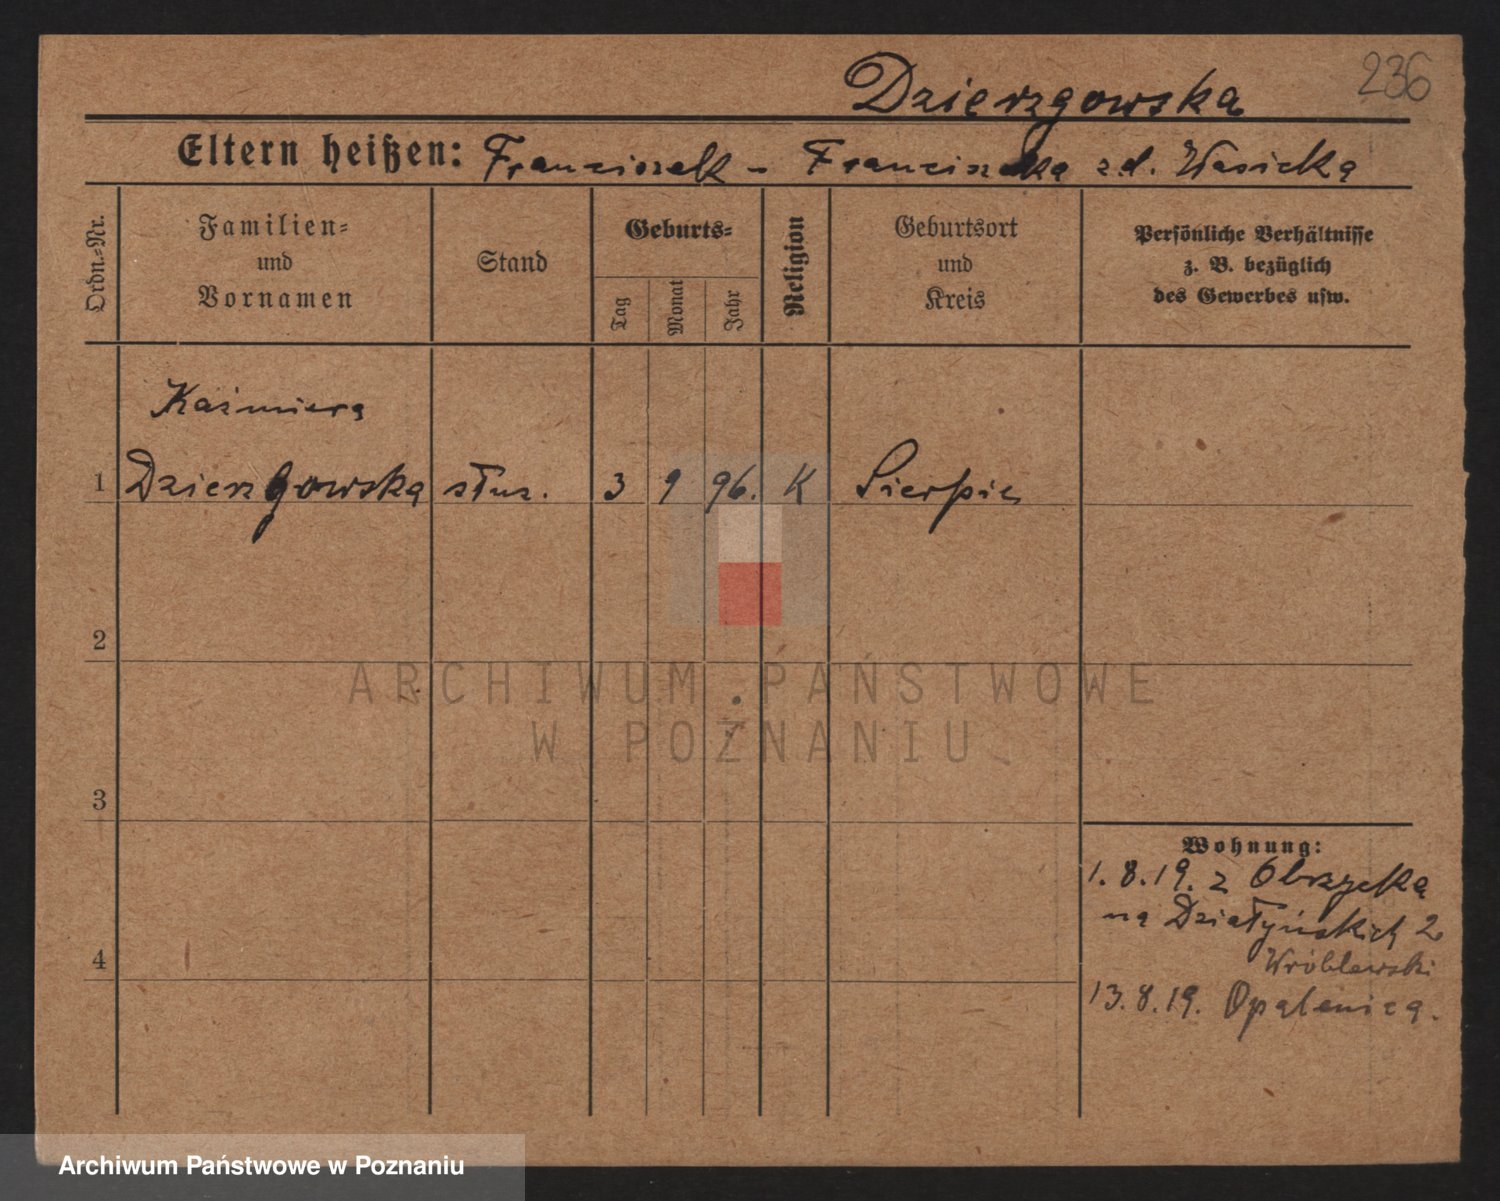 236
Dzierzgowska
Eltern heißen: Franciszek - Franciszka z d. Wasicka
Ordn.-Nr.
Familien-
und
Vornamen
Stand
Geburts-
Tag
Monat
Jahr
Religion
Geburtsort
und
Kreis
Persönliche Verhältnisse
z. B. bezüglich
des Gewerbes usw.
Kaźmiera
1 Dzierzgowska służ. 3 9 96. K Sierpie
2
3
4
Wohnung:
1.8.19. z Obrzycka
na Działyńskich 2
Wróblewski
13.8.19. Opalenica.
ARCHIWUM PAŃSTWOWE
W POZNANIU
Archiwum Państwowe w Poznaniu